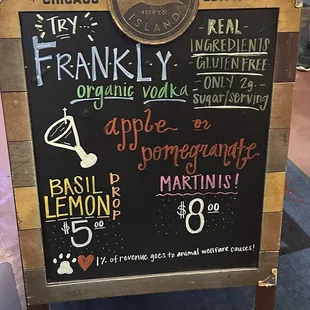 CHICAGO
BEER CO.
ISLAND
TRY
FRANKLY
organic vodka
REAL
INGREDIENTS
GLUTEN FREE
ONLY 2g
sugar/serving
apple or
pomegranate
MARTINIS!
$8.00
BASIL
LEMON
DROP
$5.00
1% of revenue goes to animal wellfare causes!